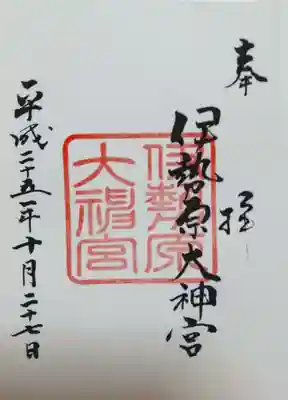 奉拝
伊勢原大神宮
伊勢原
大神宮
平成二十五年十月二十七日